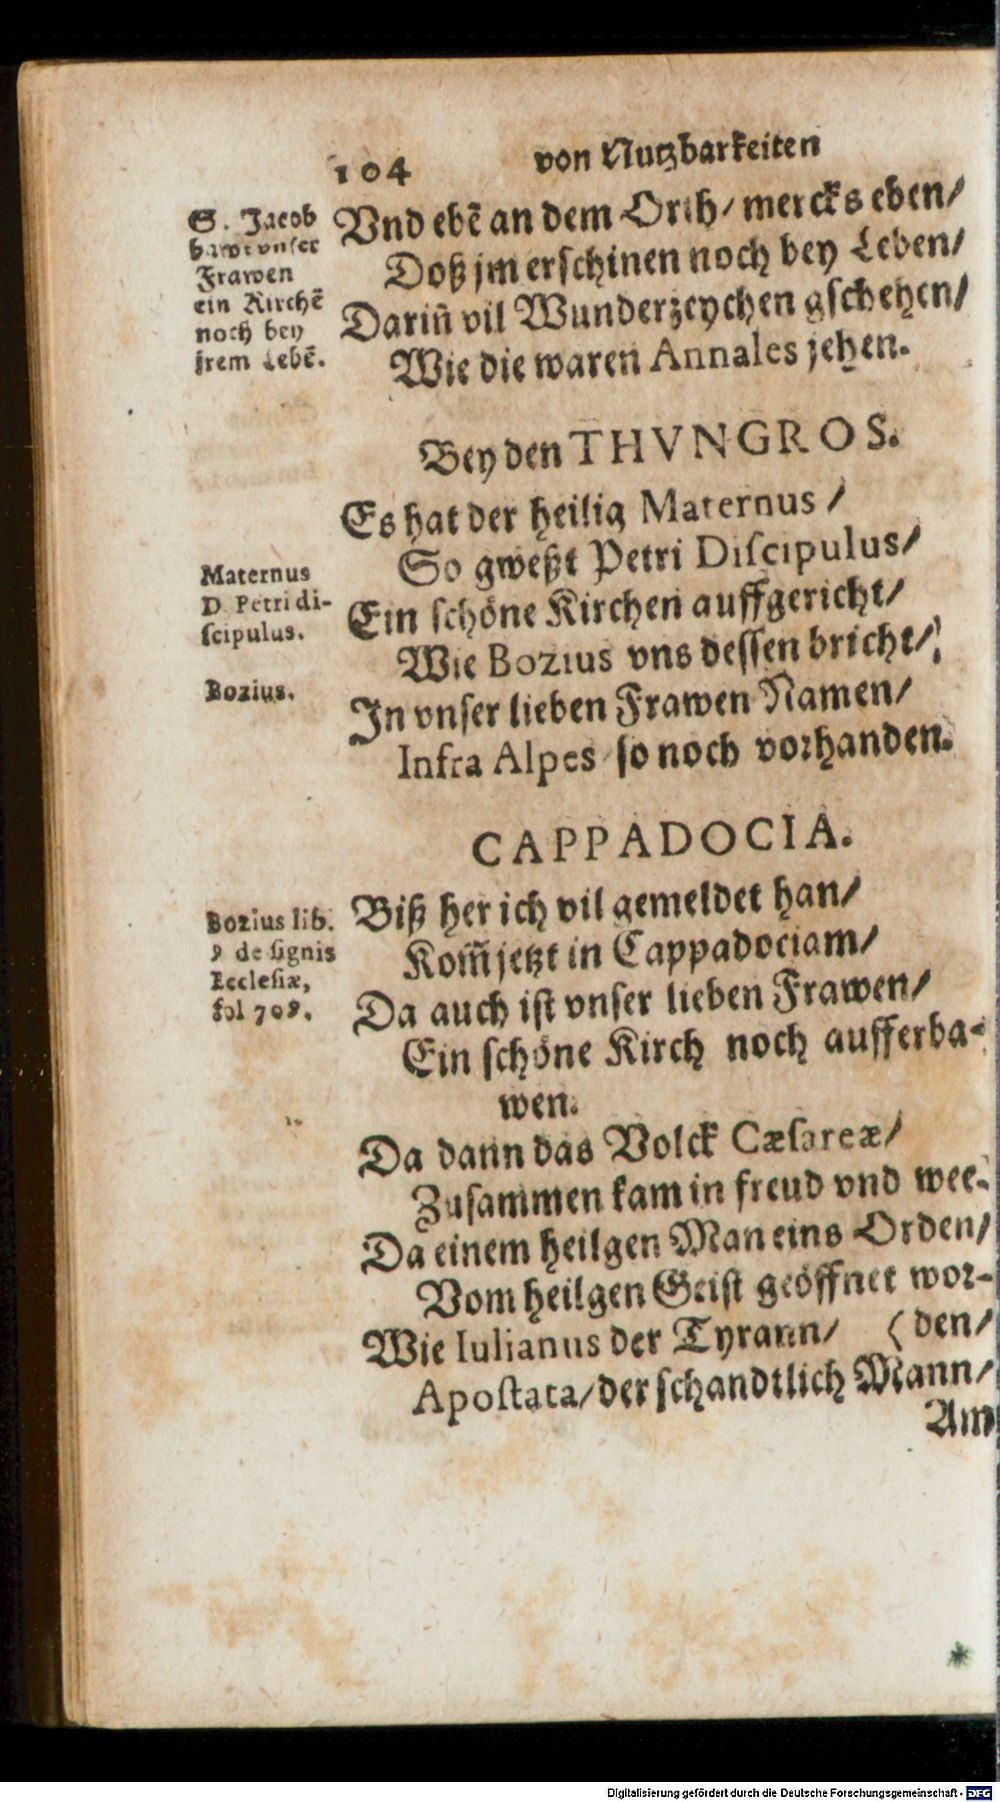 104 von Nutzbarkeiten
S. Jacob
bawt vnser
Frawen
ein Kirchẽ
noch bey
jrem Lebẽ.
Vnd ebẽ an dem Orth/ mercks eben/
Doß jm erschinen noch bey Leben/
Dariñ vil Wunderzeychen gschehen/
Wie die waren Annales jehen.
Bey den THVNGROS.
Es hat der heilig Maternus /
So gweßt Petri Discipulus/
Ein schöne Kirchen auffgericht/
Wie Bozius vns dessen bricht/
In vnser lieben Frawen Namen/
Infra Alpes so noch vorhanden.
Maternus
D. Petri di-
scipulus.
Bozius.
CAPPADOCIA.
Bozius lib.
9 de signis
Ecclesiæ,
fol 709.
Biß her ich vil gemeldet han/
Kom̃ jetzt in Cappadociam/
Da auch ist vnser lieben Frawen/
Ein schöne Kirch noch aufferba-
wen.
Da dann das Volck Cæsareæ/
Zusammen kam in freud vnd wee.
Da einem heilgen Man eins Orden/
Vom heilgen Geist geöffnet wor-
Wie Iulianus der Tyrann/ (den/
Apostata/ der schandtlich Mann/
Am
Digitalisierung gefördert durch die Deutsche Forschungsgemeinschaft - DFG